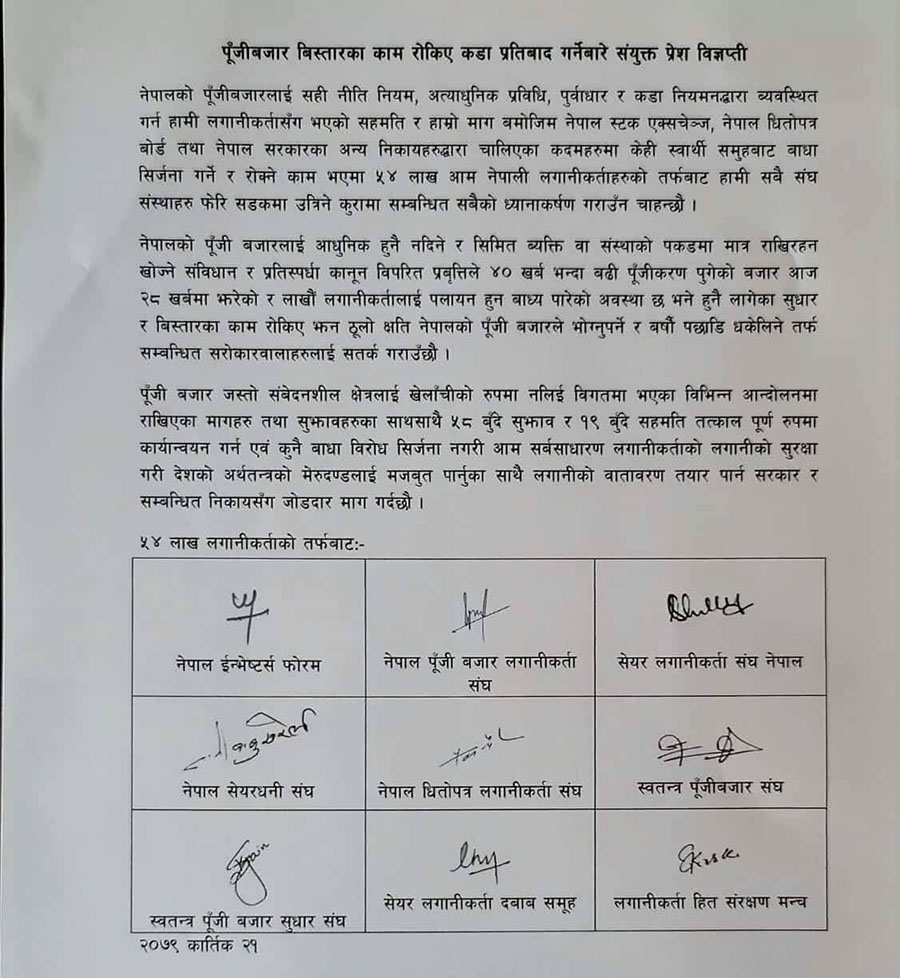 पूँजीबजार बिस्तारका काम रोकिए कडा प्रतिबाद गर्नेबारे संयुक्त प्रेश विज्ञप्ती
नेपालको पूँजीबजारलाई सही नीति नियम, अत्याधुनिक प्रविधि, पुर्वाधार र कडा नियमनद्धारा व्यवस्थित
गर्न हामी लगानीकर्तासँग भएको सहमति र हाम्रो माग बमोजिम नेपाल स्टक एक्सचेञ्ज, नेपाल धितोपत्र
बोर्ड तथा नेपाल सरकारका अन्य निकायहरुद्धारा चालिएका कदमहरुमा केही स्वार्थी समुहबाट बाधा
सिर्जना गर्ने र रोक्ने काम भएमा ५४ लाख आम नेपाली लगानीकर्ताहरुको तर्फबाट हामी सबै संघ
संस्थाहरु फेरि सडकमा उत्रिने कुरामा सम्बन्धित सबैको ध्यानाकर्षण गराउँन चाहन्छौ ।
नेपालको पूँजी बजारलाई आधुनिक हुनै नदिने र सिमित ब्यक्ति वा संस्थाको पकडमा मात्र राखिरहन
खोज्ने संविधान र प्रतिस्पर्धा कानून विपरित प्रबृत्तिले ४० खर्ब भन्दा बढी पूँजीकरण पुगेको बजार आज
२८ खर्बमा झरेको र लाखौं लगानीकर्तालाई पलायन हुन बाध्य पारेको अवस्था छ भने हुनै लागेका सुधार
र बिस्तारका काम रोकिए झन ठूलो क्षति नेपालको पूँजी बजारले भोग्नुपर्ने र बर्षौ पछाडि धकेलिने तर्फ
सम्बन्धित सरोकारवालाहरुलाई सतर्क गराउँछौ ।
पूँजी बजार जस्तो संबेदनशील क्षेत्रलाई खेलाँचीको रुपमा नलिई विगतमा भएका विभिन्न आन्दोलनमा
राखिएका मागहरु तथा सुझावहरुका साथसाथै ५८ बुँदे सुझाव र १९ बुँदे सहमति तत्काल पूर्ण रुपमा
कार्यान्वयन गर्न एवं कुनै बाधा विरोध सिर्जना नगरी आम सर्बसाधारण लगानीकर्ताको लगानीको सुरक्षा
गरी देशको अर्थतन्त्रको मेरुदण्डलाई मजबुत पार्नुका साथै लगानीको वातावरण तयार पार्न सरकार र
सम्बन्धित निकायसँग जोडदार माग गर्दछौ ।
५४ लाख लगानीकर्ताको तर्फबाट:-
नेपाल ईन्भेष्टर्स फोरम
नेपाल पूँजी बजार लगानीकर्ता
संघ
सेयर लगानीकर्ता संघ नेपाल
नेपाल सेयरधनी संघ
नेपाल धितोपत्र लगानीकर्ता संघ
स्वतन्त्र पूँजीबजार संघ
स्वतन्त्र पूँजी बजार सुधार संघ
सेयर लगानीकर्ता दबाब समूह
लगानीकर्ता हित संरक्षण मन्च
२०७९ कार्तिक २१